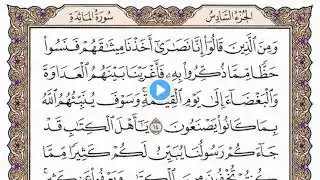 سُورَةُ المَائِدَةِ
الجُزْءُ السَّادِسُ
وَمِنَ ٱلَّذِينَ قَالُوٓا۟ إِنَّا نَصَٰرَىٰٓ أَخَذْنَا مِيثَٰقَهُمْ فَنَسُوا۟
حَظًّا مِّمَّا ذُكِّرُوا۟ بِهِۦ فَأَغْرَيْنَا بَيْنَهُمُ ٱلْعَدَاوَةَ
وَٱلْبَغْضَآءَ إِلَىٰ يَوْمِ ٱلْقِيَٰمَةِ ۚ وَسَوْفَ يُنَبِّئُهُمُ ٱللَّهُ
بِمَا كَانُوا۟ يَصْنَعُونَ ١٤ يَٰٓأَهْلَ ٱلْكِتَٰبِ قَدْ
جَآءَكُمْ رَسُولُنَا يُبَيِّنُ لَكُمْ كَثِيرًا مِّمَّا